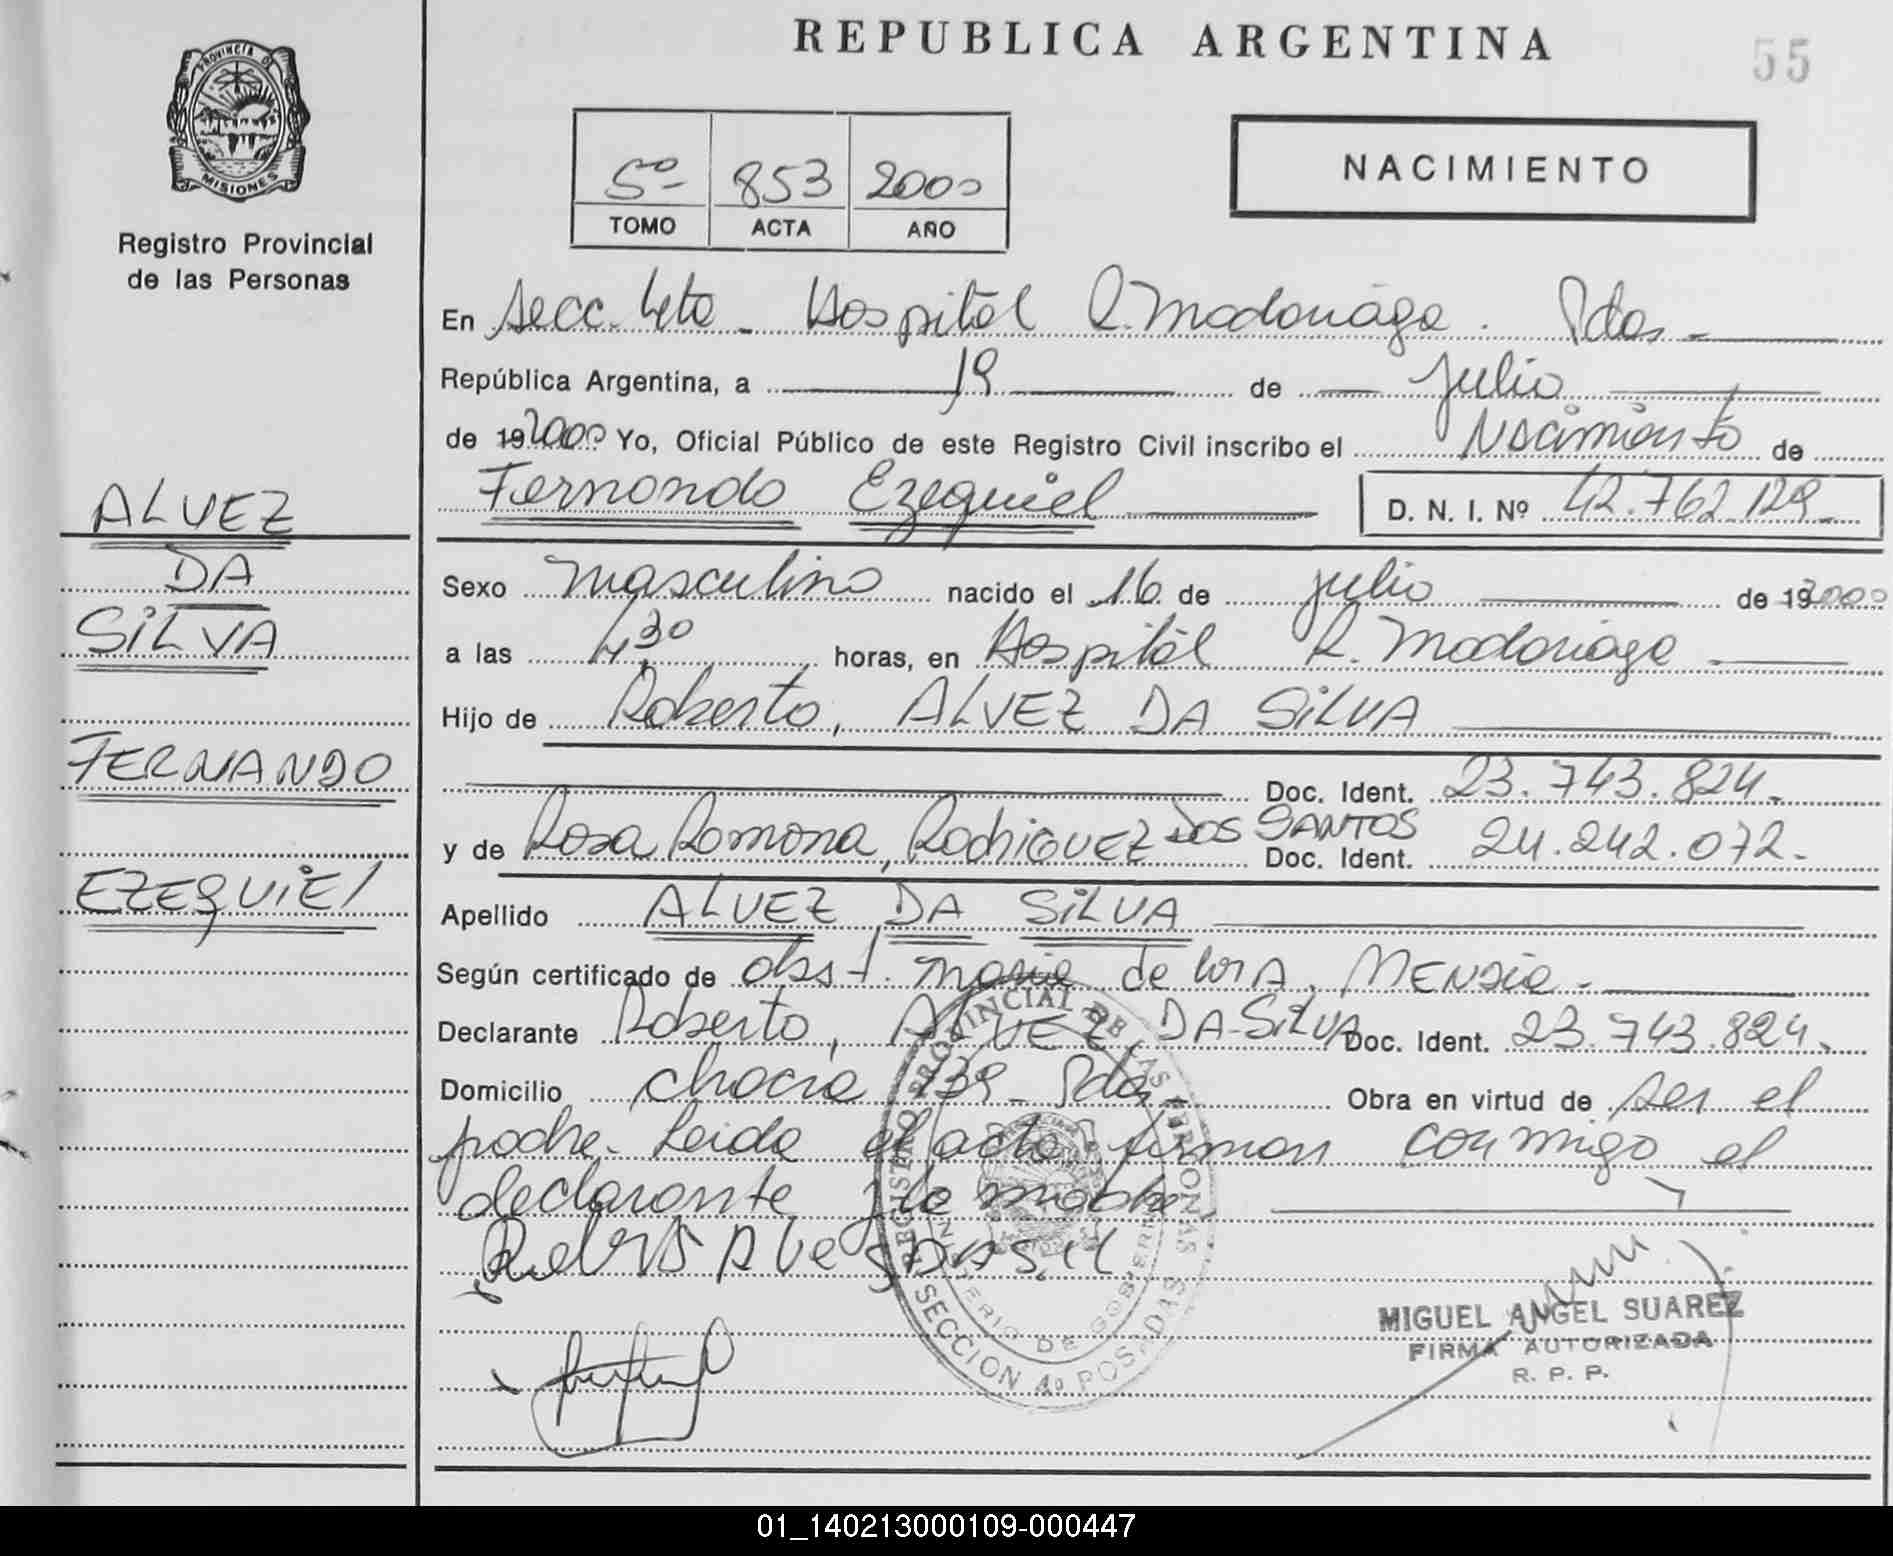 REPUBLICA ARGENTINA
55
PROVINCIA DE
MISIONES
Registro Provincial
de las Personas
5º- 853 2000
TOMO ACTA AÑO
NACIMIENTO
En Secc. 4ta - Hospital R. Madariaga. Pdas -
República Argentina, a 19 de Julio
de 19 2000 Yo, Oficial Público de este Registro Civil inscribo el Nacimiento de
Fernando Ezequiel D. N. I. Nº 42.762.129-
ALVEZ
DA
SILVA
FERNANDO
EZEQUIEL
Sexo masculino nacido el 16 de julio de 19 2000
a las 4,30 horas, en Hospital R. Madariaga
Hijo de Roberto, ALVEZ DA SILVA
Doc. Ident. 23.743.824-
y de Rosa Ramona, RODRIGUEZ DOS SANTOS Doc. Ident. 24.242.072.
Apellido ALVEZ DA SILVA
Según certificado de obst. Maria de los A. MENDIE -
Declarante Roberto, ALVEZ DA-SILVA Doc. Ident. 23.743.824.
Domicilio 139 - Pdas Obra en virtud de ser el
padre. Leida el acta firman conmigo el
declarante y la madre
REGISTRO PROVINCIAL DE LAS PERSONAS
MINISTERIO DE GOBIERNO
SECCION 4a POSADAS
MIGUEL ANGEL SUAREZ
FIRMA AUTORIZADA
R. P. P.
01_140213000109-000447